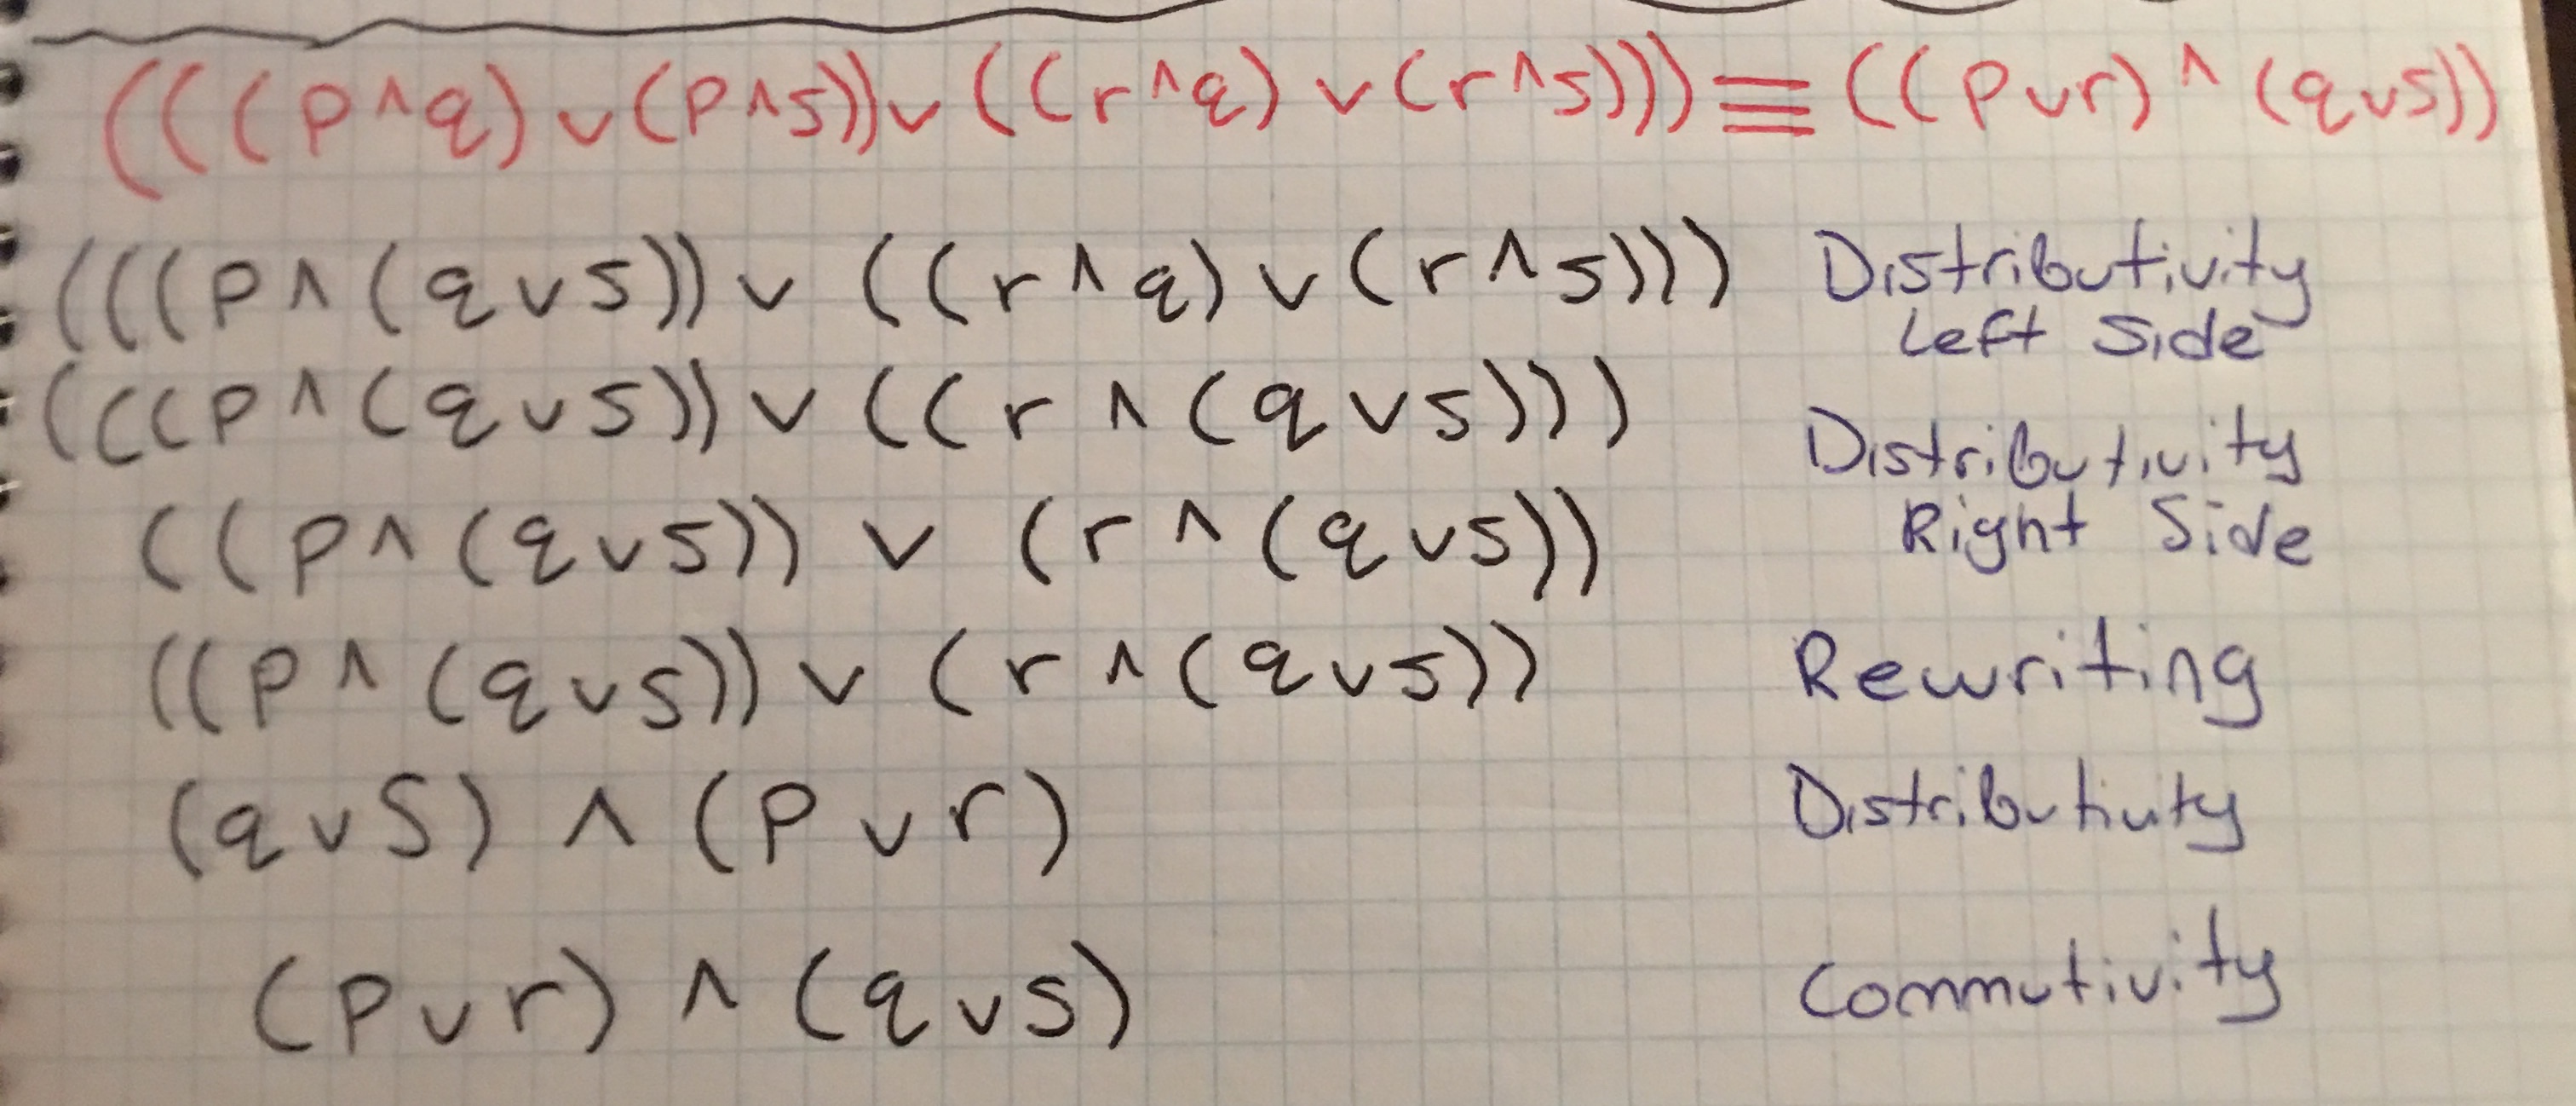 (((p∧q)∨(p∧s))∨((r∧q)∨(r∧s)))≡((p∨r)∧(q∨s))
(((p∧(q∨s))∨((r∧q)∨(r∧s))) Distributivity
Left Side
(((p∧(q∨s))∨((r∧(q∨s))) Distributivity
Right Side
((p∧(q∨s))∨(r∧(q∨s))
((p∧(q∨s))∨(r∧(q∨s)) Rewriting
(q∨s)∧(p∨r) Distributivity
(p∨r)∧(q∨s) Commutivity